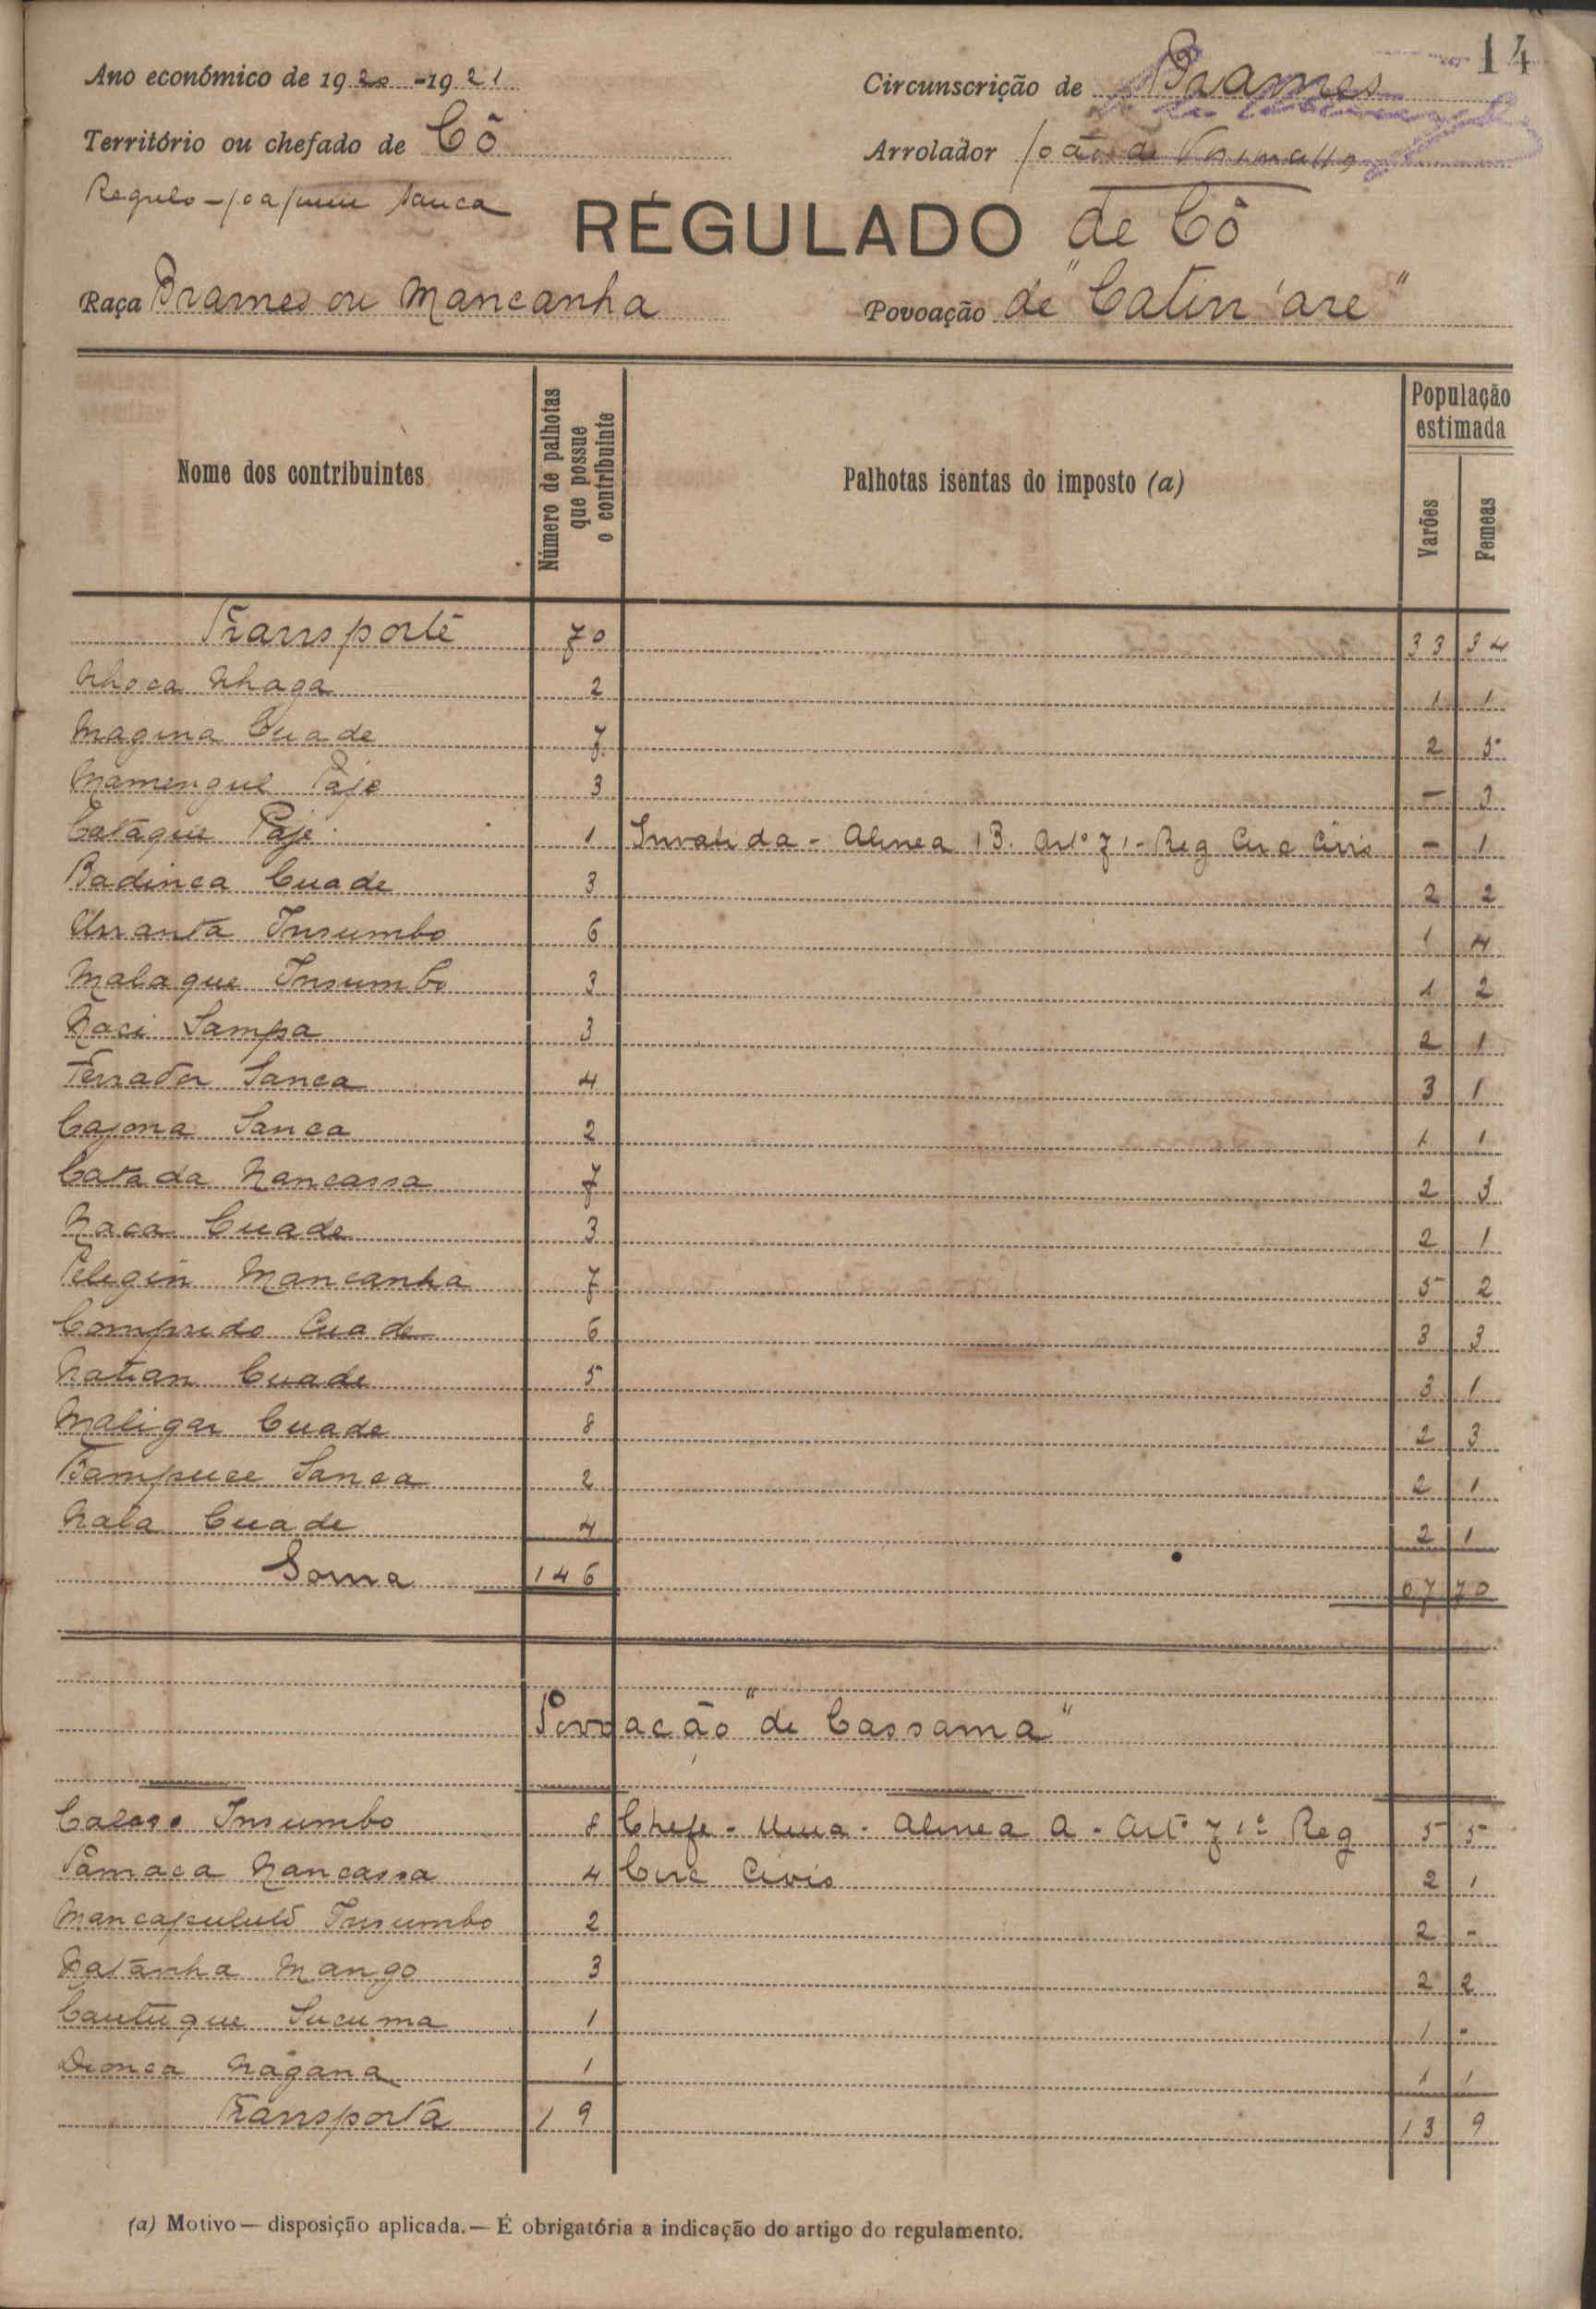 14
Ano económico de 1920-1921
Circunscrição de Brames
Território ou chefado de Cô
Arrolador João de
Regulo - Joaquim Sanca
RÉGULADO de Cô
Raça Brames ou Mancanha
Povoação de "Catin'are"
Nome dos contribuintes
Número de palhotas que possue o contribuinte
Palhotas isentas do imposto (a)
População estimada
Varões
Femeas
Transporte 70 33 34
Nhoca Nhaga 2 1 1
Magina Cuade 7 2 5
Mamengue Paje 3 - 3
Catáque Paje 1 Invalida - Alinea B. Artº 71 - Reg Circ Civis - 1
Badinca Cuade 3 2 2
Urranta Insumbo 6 1 4
Malaque Insumbo 3 1 2
Naci Sampa 3 2 1
Ferrador Sanca 4 3 1
Cajona Sanca 2 1 1
Catada Nancassa 7 2 3
Naca Cuade 3 2 1
Pelegin Mancanha 7 5 2
Comprido Cuade 6 3 3
Natian Cuade 5 3 1
Maligar Cuade 8 2 3
Bampuce Sanca 2 2 1
Nala Cuade 4 2 1
Soma 146 67 70
Povoacão "de Cassama"
Insumbo 8 Chefe - Uma - Alinea A - Artº 71º Reg 5 5
Sâmaca Nancassa 4 Circ Civis 2 1
Mancapululo Insumbo 2 2 -
Natanha Mango 3 2 2
Cautuque Sucuma 1 1 -
Dionca Nágana 1 1 1
Transporta 19 13 9
(a) Motivo — disposição aplicada. — É obrigatória a indicação do artigo do regulamento.